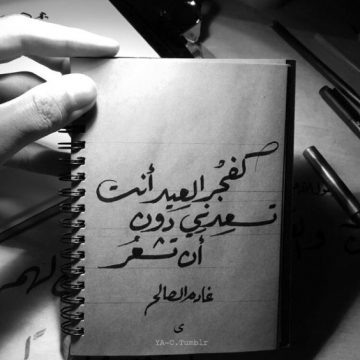 كفجر العيد أنت
تسعدني دون
أن تشعر
غاده الصالح
ى
YA-C.Tumblr